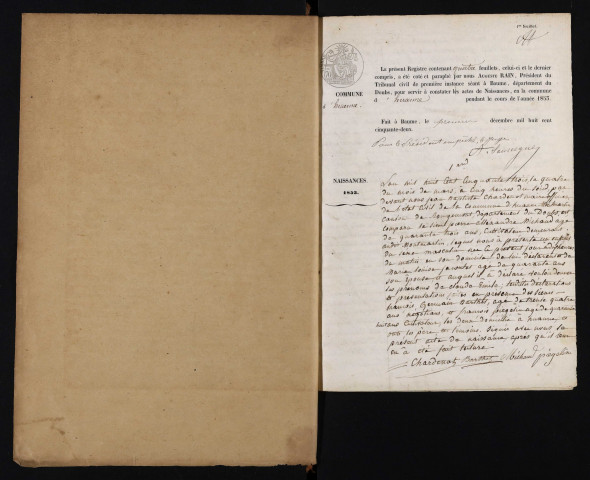 1er feuillet.
Le présent Registre contenant quatre feuillets, celui-ci et le dernier
compris, a été coté et paraphé par nous Auguste RAIN, Président du
Tribunal civil de première instance séant à Baume, département du
Doubs, pour servir à constater les actes de Naissances, en la commune
d'huanne pendant le cours de l'année 1853.
COMMUNE
d'huanne.
Fait à Baume, le premier décembre mil huit cent
cinquante-deux.
Pour le Président empêché, le Juge
NAISSANCES.
1853.
L'an mil huit cent cinquante trois, le quatre
du mois de mars, à cinq heures du soir par
devant nous jean Baptiste Chardenot maire officier
de l'état Civil de la commune d'huanne
Canton de Rougemont département du Doubs, est
comparu le sieur pierre Alexandre Michaud age
de quarante trois ans, Cultivateur demeurant
audit Montmartin, lequel nous a présenté un enfant
du sexe masculin né le présent jour à
du matin en son domicile de lui déclarant et de
Marie Louise age de quarante ans
son épouse, et auquel il a déclaré vouloir donner
les prénoms de claude Emile; lesdites déclarations
et présentation faites en présence des sieurs
françois Germain Barthet, age de trente quatre
ans négociant, et françois age de quarante
ans Cultivateur, les deux domiciliés à huanne et
ont les père et témoins signés avec nous le
présent acte de naissance après qu'il leur
en a été fait lecture.
Chardenot Barthet Michaud